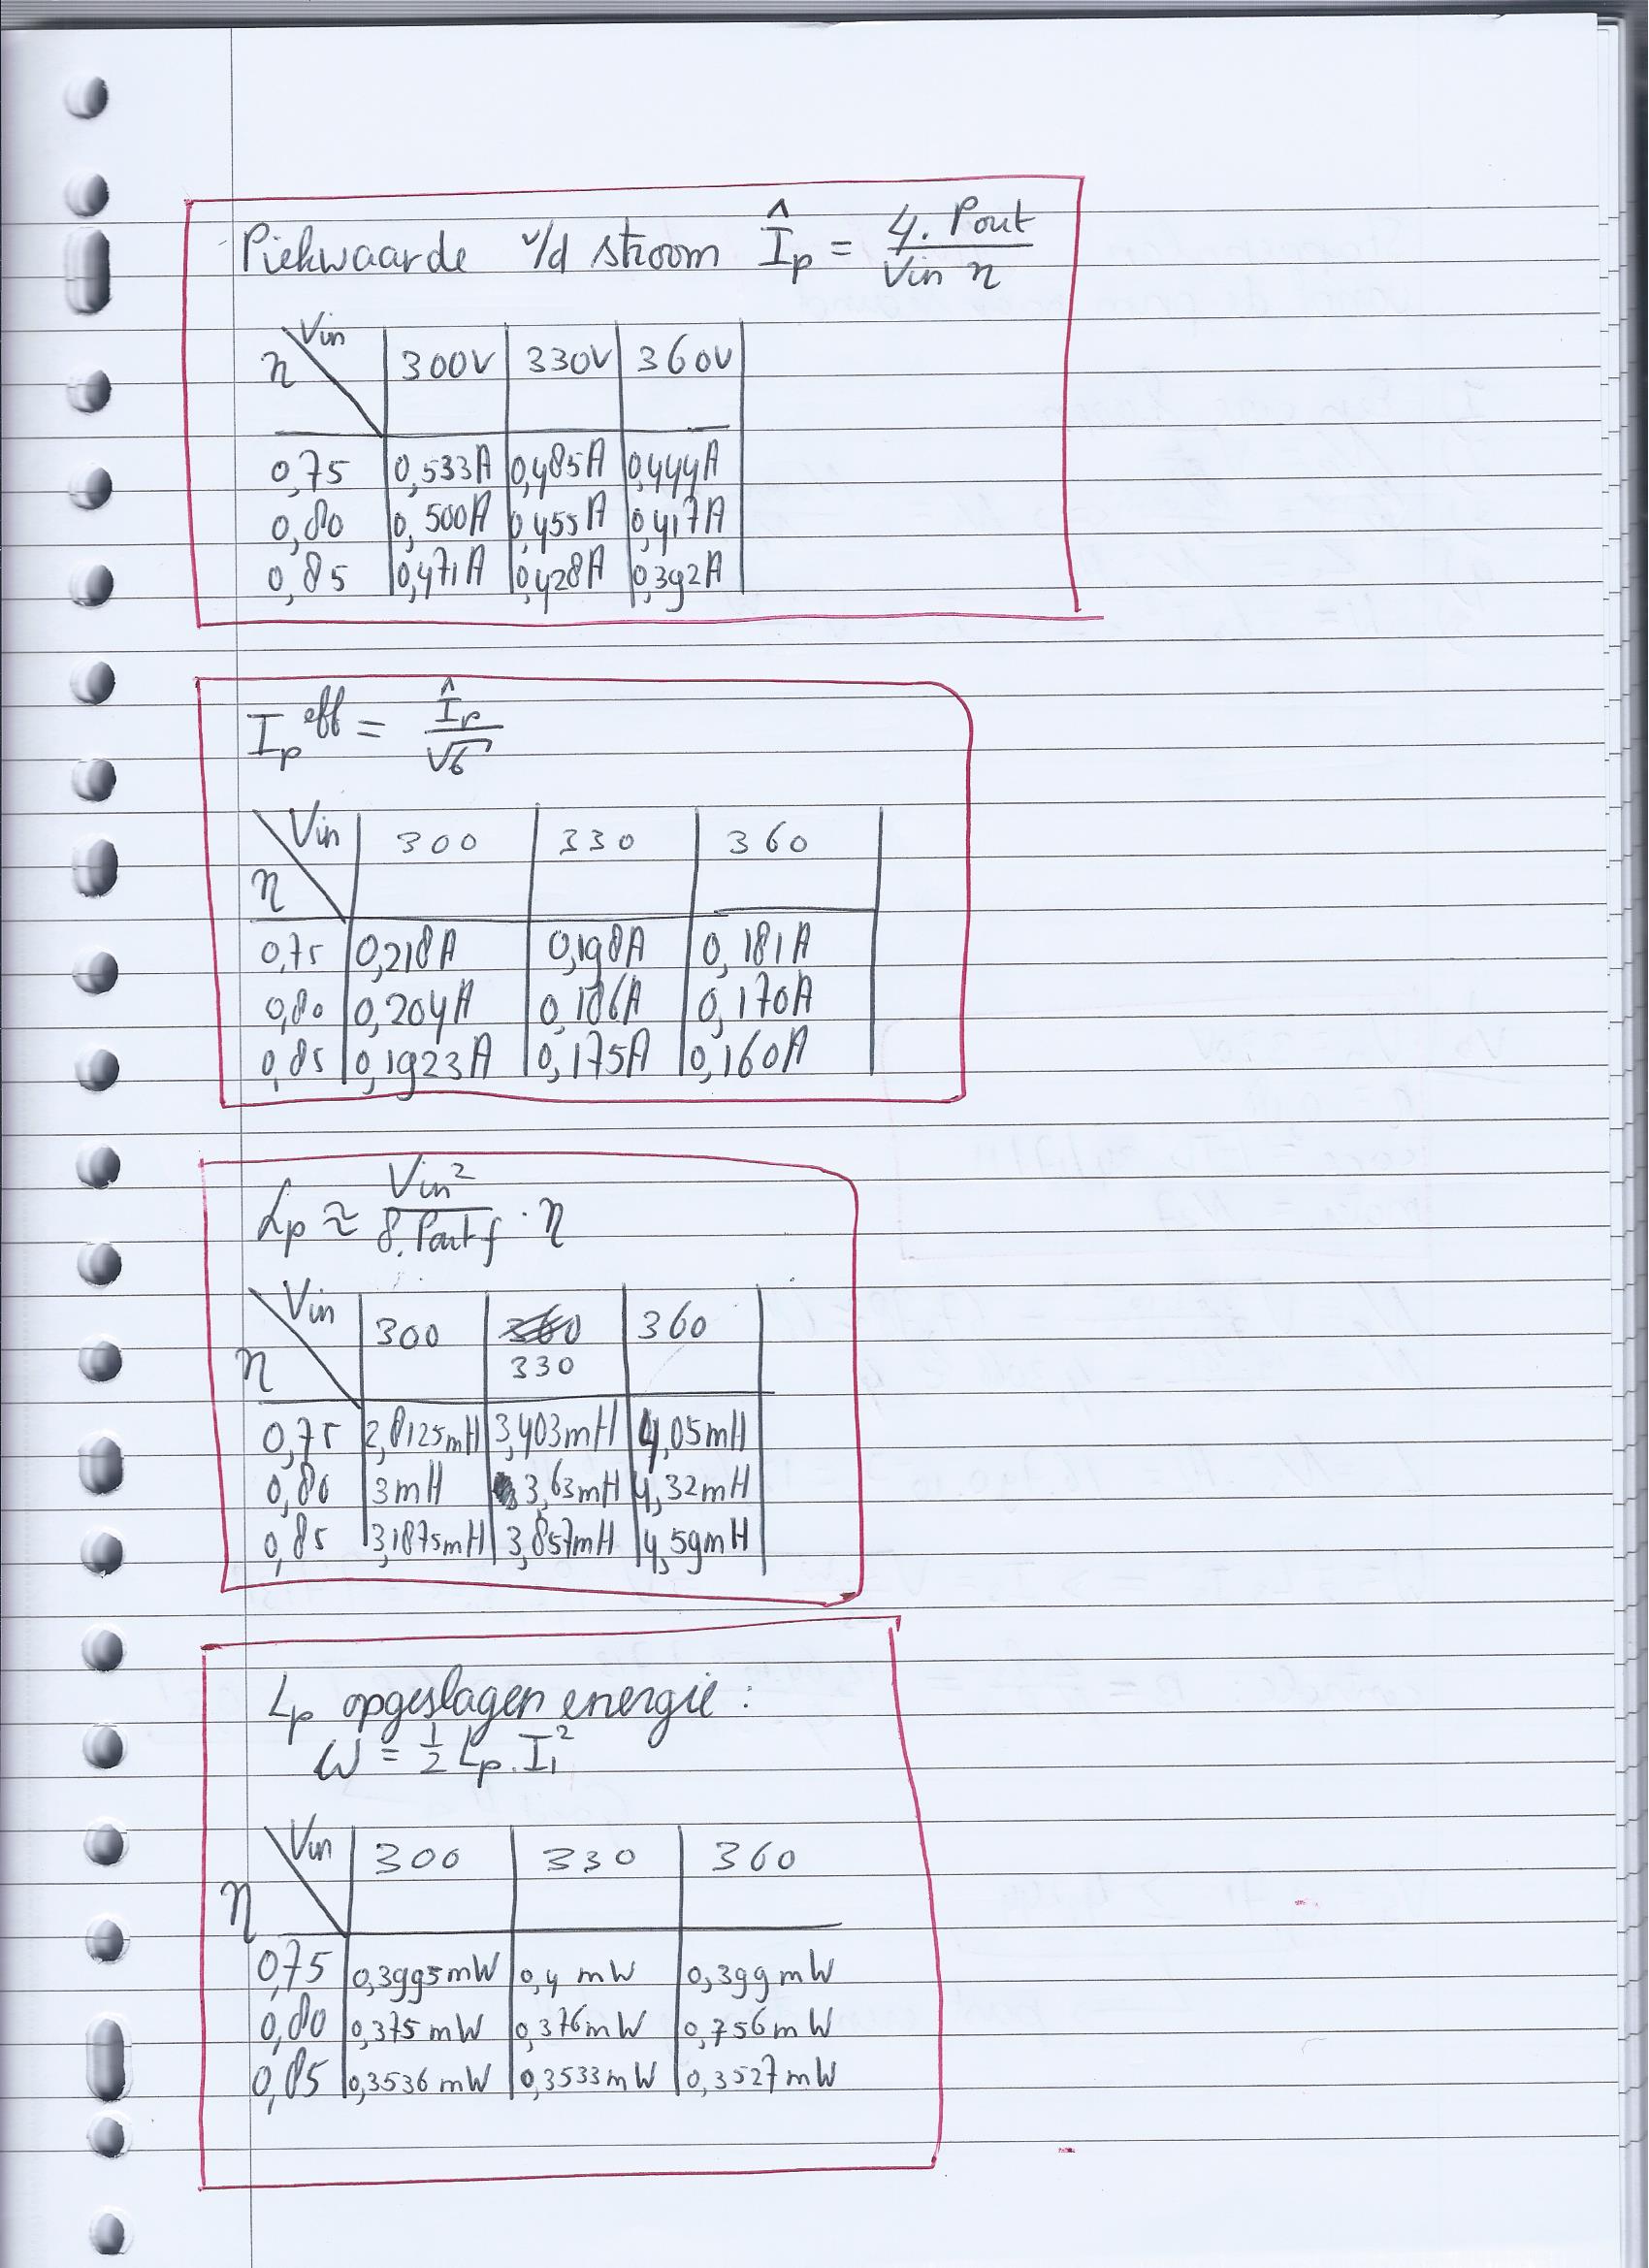 Piekwaarde v/d stroom Îp = 4. Pout / Vin η
Vin
η 300V 330V 360V
0,75 0,533A 0,485A 0,444A
0,80 0,500A 0,455A 0,417A
0,85 0,471A 0,428A 0,392A
Ip eff = Îp / √6
Vin 300 330 360
η
0,75 0,218A 0,198A 0,181A
0,80 0,204A 0,186A 0,170A
0,85 0,1923A 0,175A 0,160A
Lp ≈ Vin² / 8. Pout f · η
Vin 300 360 360
η 330
0,75 2,8125mH 3,403mH 4,05mH
0,80 3mH 3,63mH 4,32mH
0,85 3,1875mH 3,857mH 4,59mH
Lp opgeslagen energie :
W = 1/2 Lp. I₁²
Vin 300 330 360
η
0,75 0,3995mW 0,4 mW 0,399mW
0,80 0,375mW 0,376mW 0,756mW
0,85 0,3536mW 0,3533mW 0,3527mW